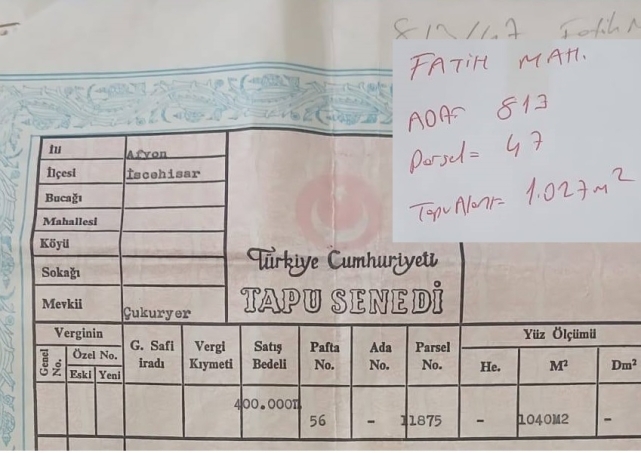 813/47 Fatih M
FATİH MAH.
ADA= 813
Parsel= 47
Tapu Alanı= 1.027m²
İli Afyon
İlçesi İscehisar
Bucağı
Mahallesi
Köyü
Sokağı
Mevkii Çukuryer
Türkiye Cumhuriyeti
TAPU SENEDİ
Verginin
Genel No.
Özel No.
Eski Yeni
G. Safi iradı
Vergi Kıymeti
Satış Bedeli
Pafta No.
Ada No.
Parsel No.
Yüz Ölçümü
He. M² Dm²
400.000 56 - 11875 - 1040M2 -